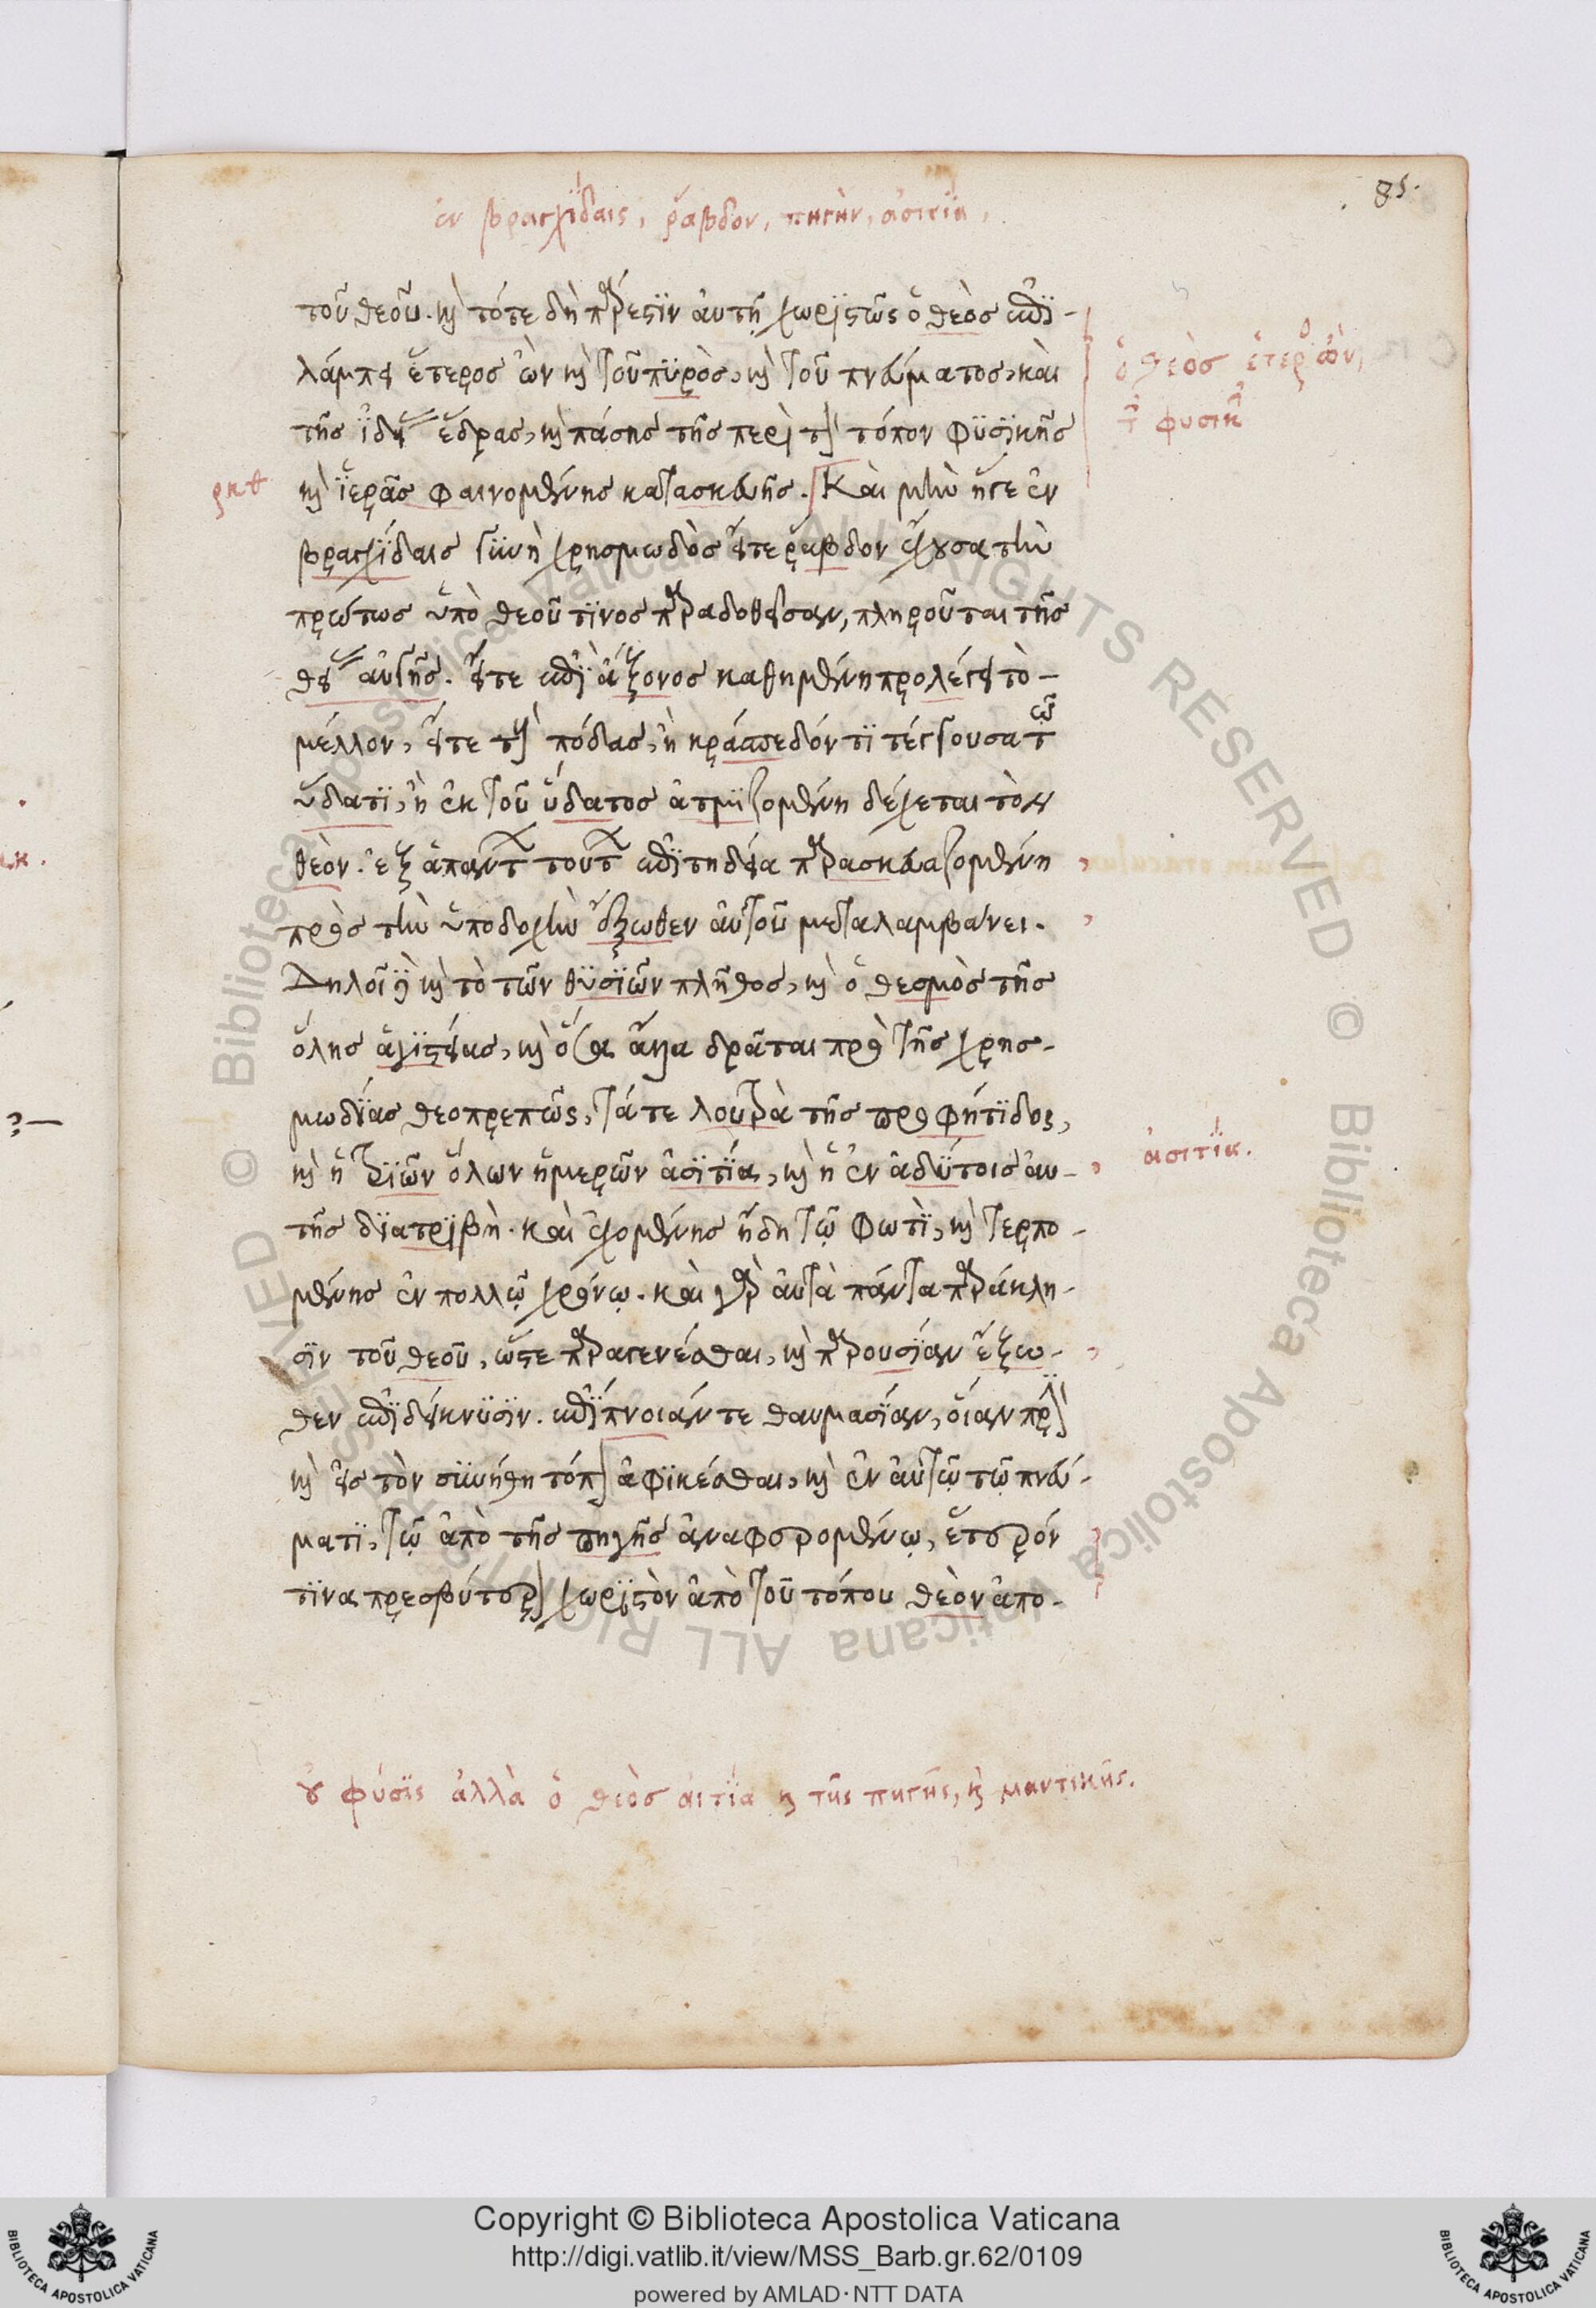 85.
ἐν βραγχίδαις, ῥάβδον, πηγὴν, ἀσιτία,
τοῦ θεοῦ. καὶ τότε δὴ πάρεστϊν ἀυτῇ χωρϊστῶς ὁ θεὸς ἐπϊ-
λάμπει ἕτερος ὢν καὶ τοῦ πϋρὸς, καὶ τοῦ πνεύματος, καὶ
τῆς ϊδίας ἕδρας, καὶ πάσης τῆς περὶ τὸν τόπον φϋσϊκῆς
καὶ ϊερᾶς φαινομένης κατασκευῆς. Καὶ μὴν ἥγε ἐν
βραγχίδαις γϋνὴ χρησμωδὸς εἴτε ῥάβδον ἔχουσα τὴν
πρώτως ὑπὸ θεοῦ τϊνος παραδοθεῖσαν, πληροῦται τῆς
θείας αὐγῆς. εἴτε ἐπὶ ἄξονος καθημένη προλέγει τὸ
μέλλον, εἴτε τοὺς πόδας, ἢ κράσπεδόν τϊ τέγγουσα τῶ
ὕδατϊ, ἢ ἐκ τοῦ ὕδατος ἀτμϊζομένη δέχεται τὸν
θεόν. ἐξ ἁπάντων τούτων ἐπϊτηδεία παρασκευαζομένη
πρὸς τὴν ὑποδοχὴν ἔξωθεν αὐτοῦ μεταλαμβάνει.
Δηλοῖ δὲ καὶ τὸ τῶν θϋσϊῶν πλῆθος, καὶ ὁ θεσμὸς τῆς
ὅλης ἁγϊστείας, καὶ ὅσα ἄλλα δρᾶται πρὸ τῆς χρησ-
μωδίας θεοπρεπῶς, τά τε λουτρὰ τῆς προφήτϊδος,
καὶ ἡ τρϊῶν ὅλων ἡμερῶν ἀσϊτία, καὶ ἡ ἐν ἀδύτοις αὐ-
τῆς δϊατρϊβὴ. καὶ ἐχομένης ἤδη τῷ φωτὶ, καὶ τερπο-
μένης ἐν πολλῷ χρόνῳ. καὶ γὰρ αὐτὰ πάντα παράκλη-
σϊν τοῦ θεοῦ, ὥστε παραγενέσθαι, καὶ παρουσίαν ἔξω-
θεν ἐπϊδείκνϋσϊν. ἐπίπνοιάν τε θαυμασίαν, οἵαν πρὶν
καὶ εἰς τὸν σϋνήθη τόπον ἀφϊκέσθαι, καὶ ἐν αὐτῷ τῷ πνεύ-
ματϊ, τῷ ἀπὸ τῆς πηγῆς ἀναφερομένῳ, ἕτερόν
τϊνα πρεσβύτερον χωρϊστὸν ἀπὸ τοῦ τόπου θεὸν ἀπο-
ὁ θεὸς ἕτερος ὢν,
τῶν φυσικῶν
ρκθ
ἀσιτία.
οὐ φύσϊς ἀλλὰ ὁ θεὸς αἰτία καὶ τῆς πηγῆς, καὶ μαντϊκῆς.
© Biblioteca Apostolica Vaticana ALL RIGHTS RESERVED © Biblioteca Apostolica Vaticana ALL RIGHTS RESERVED
Copyright © Biblioteca Apostolica Vaticana
http://digi.vatlib.it/view/MSS_Barb.gr.62/0109
powered by AMLAD·NTT DATA
BIBLIOTECA APOSTOLICA VATICANA
BIBLIOTECA APOSTOLICA VATICANA